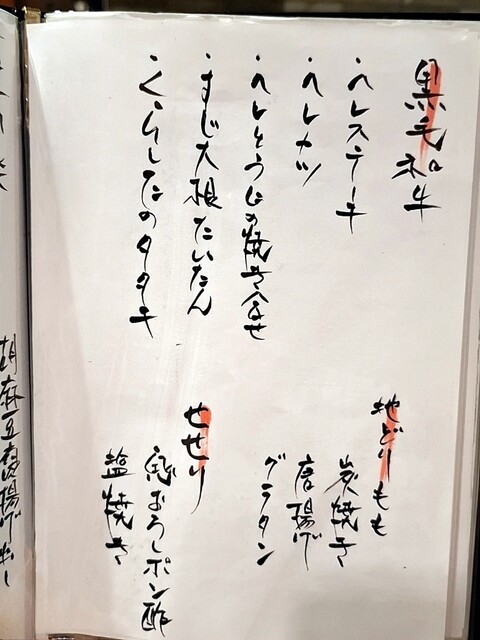 黒毛和牛
・ヘレステーキ
・ヘレカツ
・ヘレとうにの焼き合せ
・すじ大根たいたん
・くらしたのタタキ
地どりもも
炭焼き
唐揚げ
グラタン
せせり
おろしポン酢
塩焼き
胡麻豆腐揚げ出し